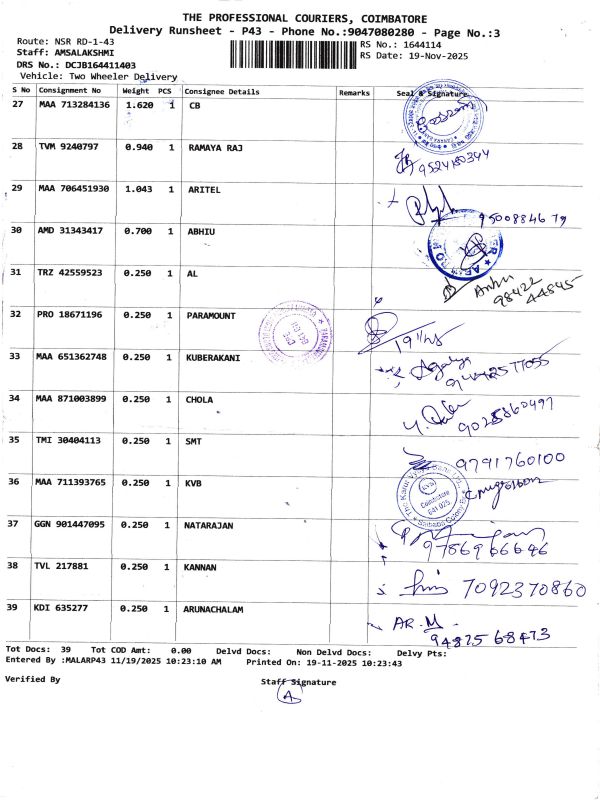 THE PROFESSIONAL COURIERS, COIMBATORE
Delivery Runsheet - P43 - Phone No.:9047080280 - Page No.:3
Route: NSR RD-1-43 RS No.: 1644114
Staff: AMSALAKSHMI RS Date: 19-Nov-2025
DRS No.: DCJB164411403
Vehicle: Two Wheeler Delivery
S No Consignment No Weight PCS Consignee Details Remarks Seal & Signature
27 MAA 713284136 1.620 1 CB
28 TVM 9240797 0.940 1 RAMAYA RAJ
9524180344
29 MAA 706451930 1.043 1 ARITEL
9500884679
30 AMD 31343417 0.700 1 ABHIU
31 TRZ 42559523 0.250 1 AL
98422
44845
32 PRO 18671196 0.250 1 PARAMOUNT
33 MAA 651362748 0.250 1 KUBERAKANI
34 MAA 871003899 0.250 1 CHOLA
9025860497
35 TMI 30404113 0.250 1 SMT
9791760100
36 MAA 711393765 0.250 1 KVB
The Karur Vysya Bank Ltd.
KVB
Coimbatore
641 025
37 GGN 901447095 0.250 1 NATARAJAN
9786966646
38 TVL 217881 0.250 1 KANNAN
7092370860
39 KDI 635277 0.250 1 ARUNACHALAM
AR. M.
94875 68473
Tot Docs: 39 Tot COD Amt: 0.00 Delvd Docs: Non Delvd Docs: Delvy Pts:
Entered By :MALARP43 11/19/2025 10:23:10 AM Printed On: 19-11-2025 10:23:43
Verified By Staff Signature
A